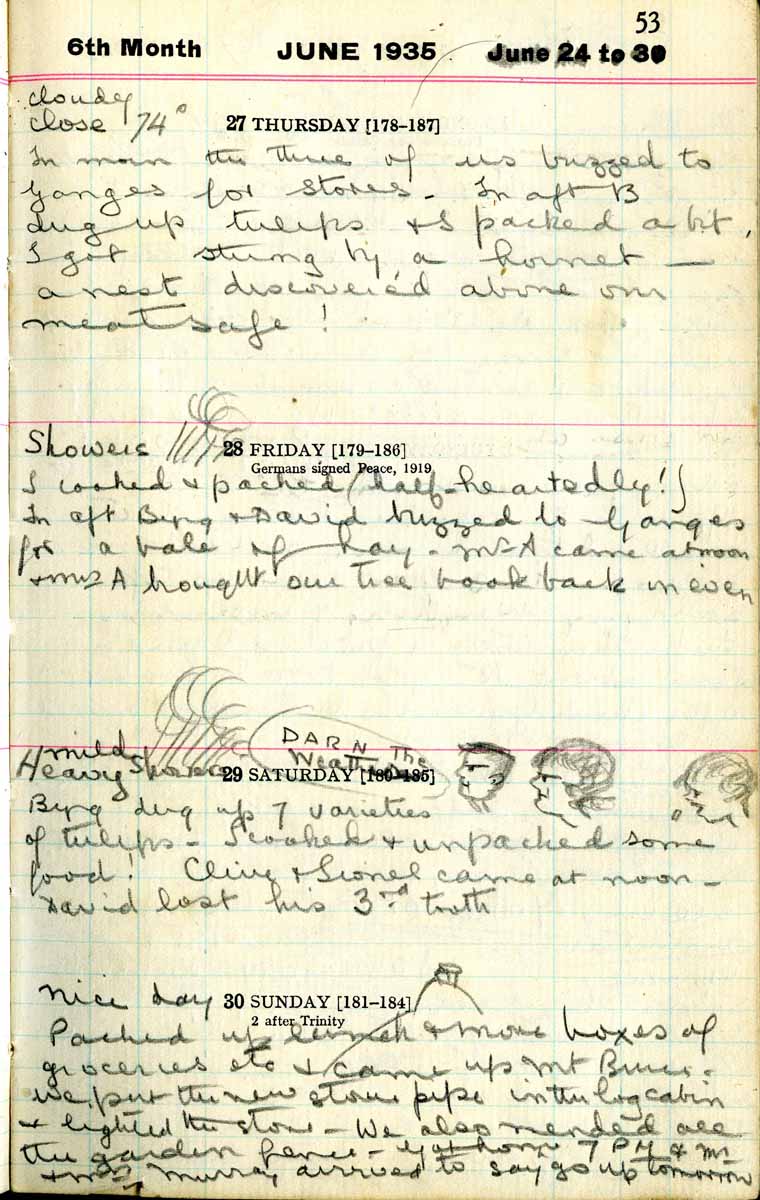 53
6th Month JUNE 1935 June 24 to 30
cloudy
close 74° 27 THURSDAY [178–187]
In morn the three of us buzzed to
Ganges for stores - In aft B
dug up tulips & I packed a bit,
I got stung by a hornet —
a nest discovered above our
meatsafe!
Showers 28 FRIDAY [179–186]
Germans signed Peace, 1919
I cooked & packed (half-heartedly!)
In aft Byng & David buzzed to Ganges
for a bale of hay - Mr A came at noon
& Mrs A brought our tree book back in even
DARN The
Weather
mild
Heavy Showers 29 SATURDAY [180–185]
Byng dug up 7 varieties
of tulips - I cooked & unpacked some
food! Clive & Lionel came at noon -
David lost his 3rd tooth
Nice day 30 SUNDAY [181–184]
2 after Trinity
Packed up lunch & more boxes of
groceries etc & came up Mt Bruce -
we put the new stove pipe in the log cabin
& lighted the stove - We also mended all
the garden fence - Got home 7 PM & Mr
& Mrs Murray arrived to say go up tomorrow